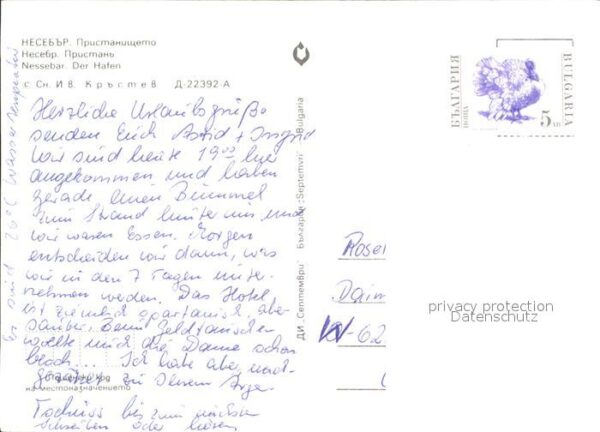 НЕСЕБЪР. Пристанището
Несебр. Пристань
Nessebar. Der Hafen
с. Сн. Ив. Кръстев Д-22392-А
Herzliche Urlaubsgrüße
senden Euch Astrid + Ingrid
Wir sind heute 19⁰⁰ hier
angekommen und haben
gerade einen Bummel
zum Strand hinter uns und
wir waren Essen. Morgen
entscheiden wir dann, was
wir in den 7 Tagen unter-
nehmen werden. Das Hotel
ist ziemlich spartanisch, aber
sauber. Beim Geldtauschen
wollte mich die Dame schon
... Ich habe aber nach-
zu ihrem
Tschüss bis zum nächsten
Schreiben oder hören
Es sind 26°C Wasser
Пощенски код
на местоназначението
ДИ „Септември“ България „Septemvri“ Bulgaria
БЪЛГАРИЯ
ПОЩА
5
BULGARIA
Roser
Daim
W-62
privacy protection
Datenschutz